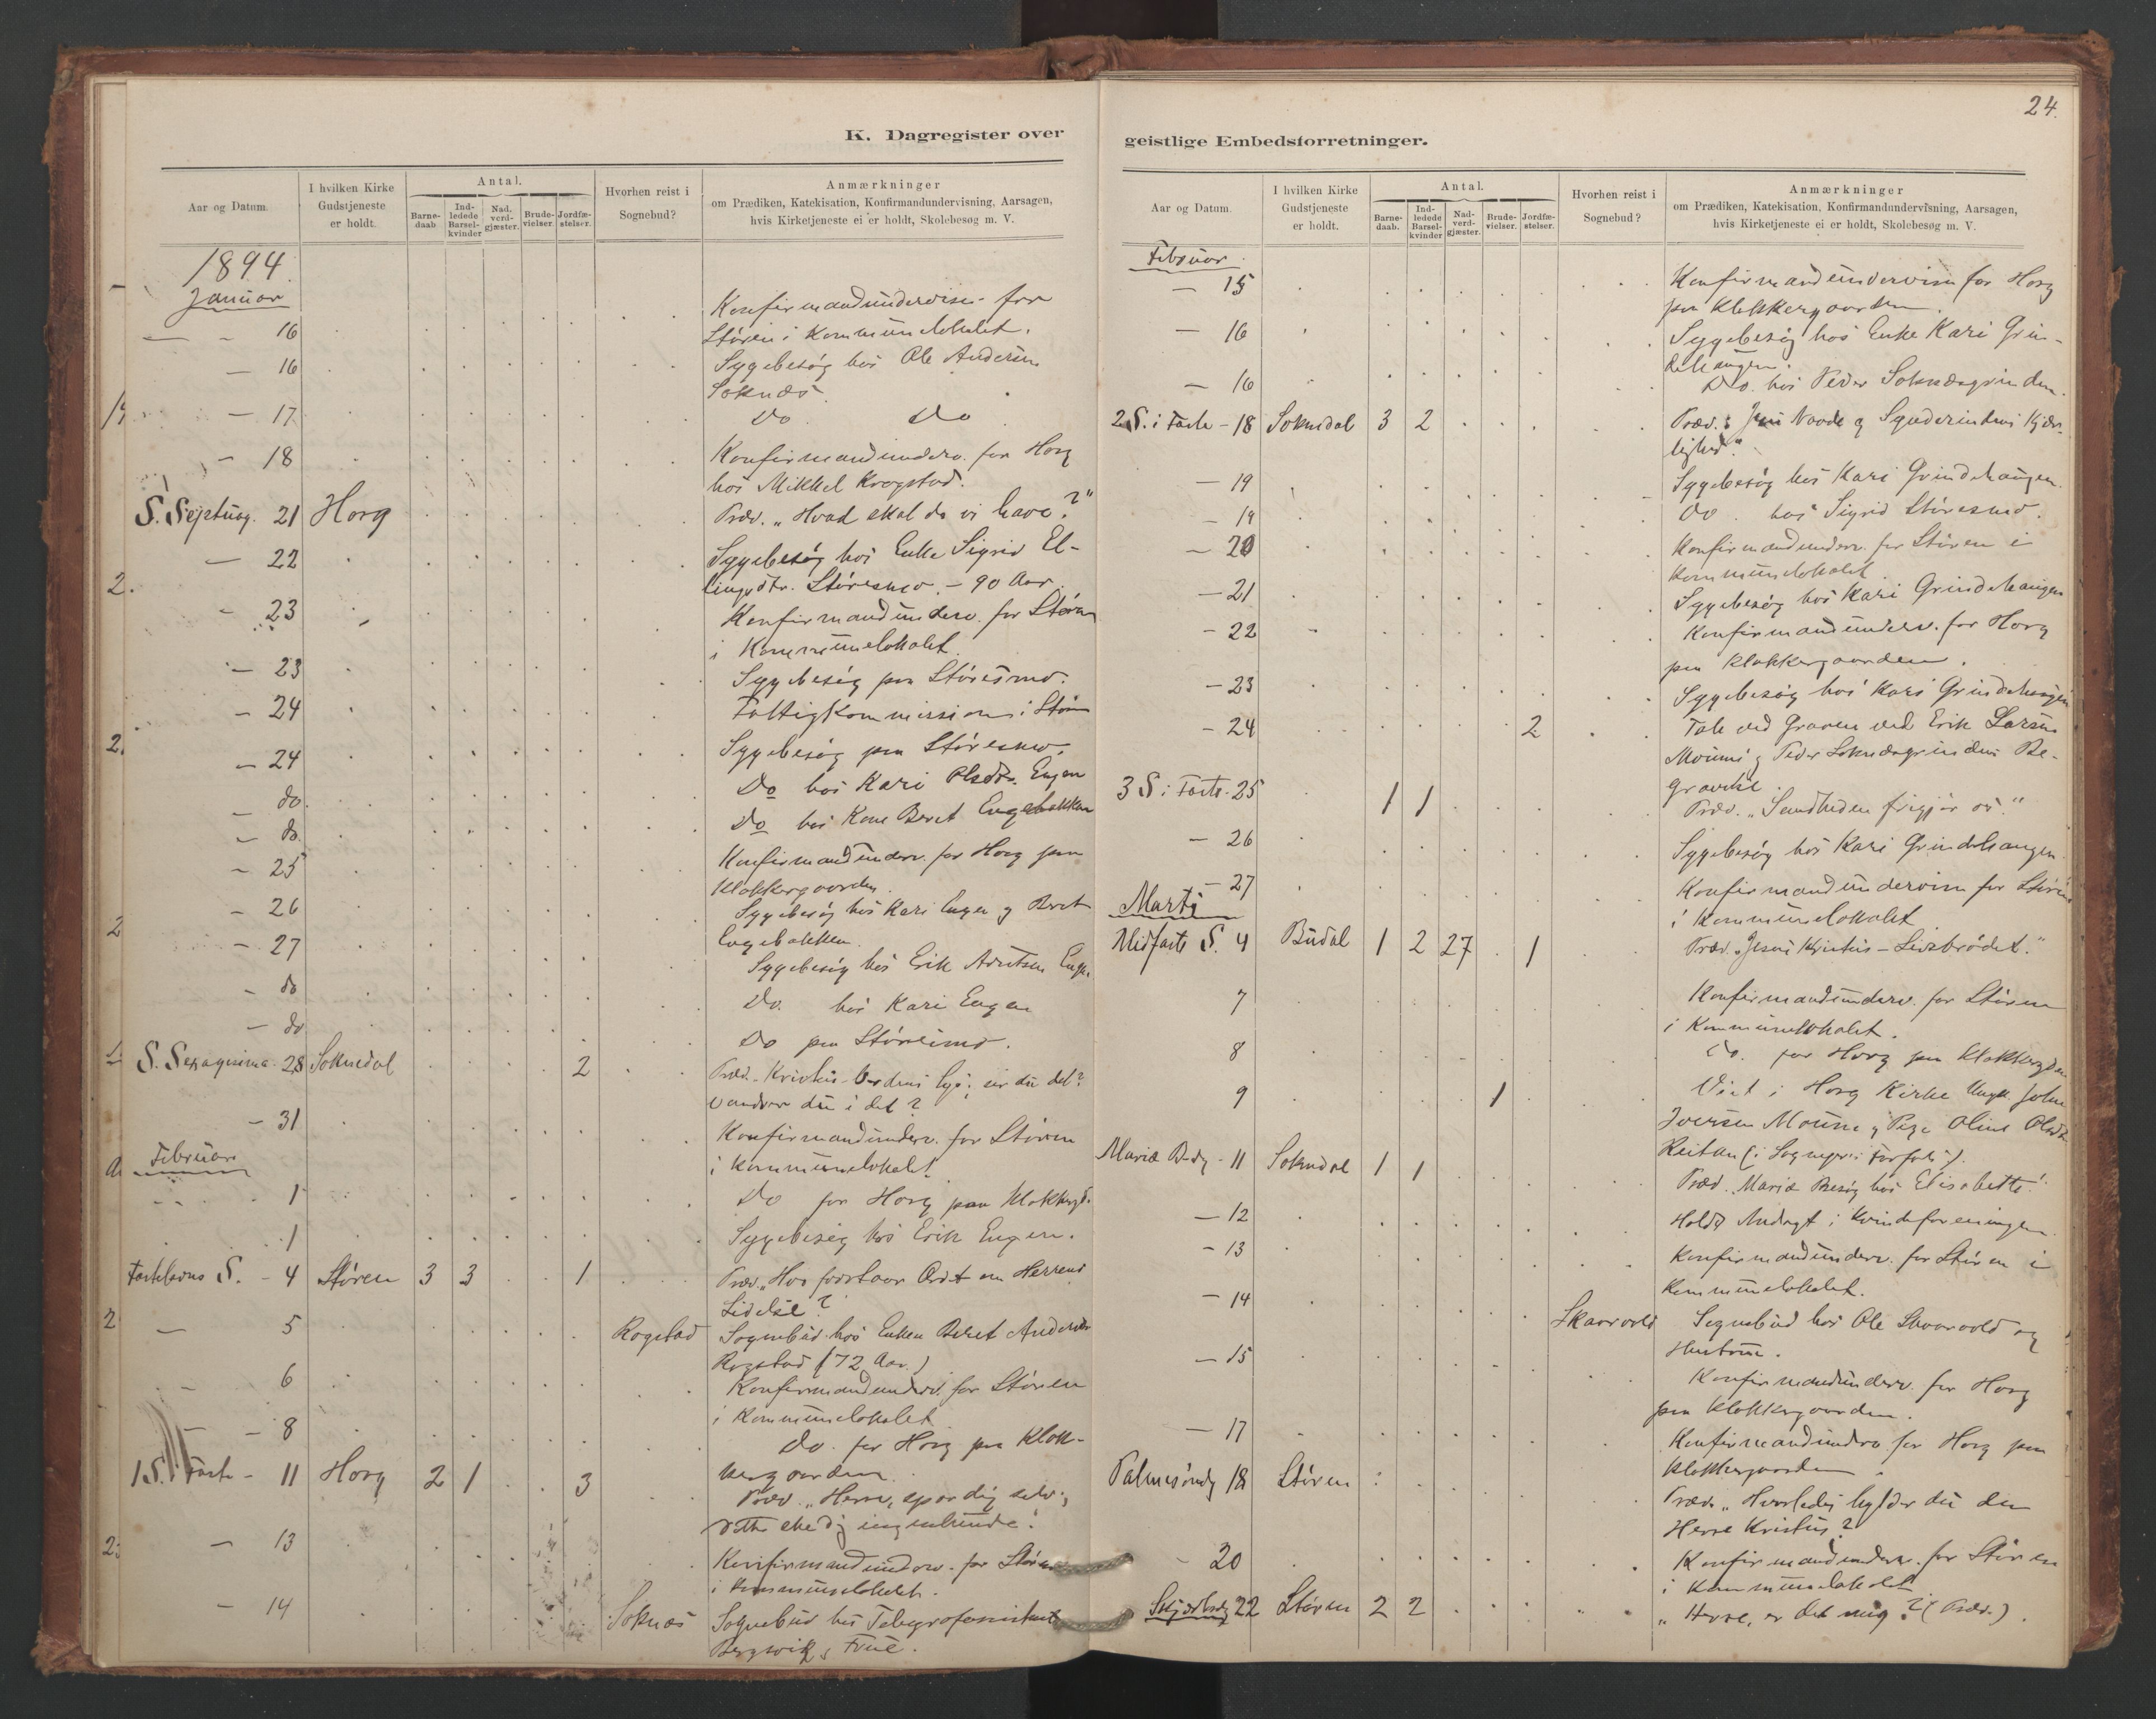 K. Dagregister over
Aar og Datum.
I hvilken Kirke Gudstjeneste er holdt.
Antal.
Barne-daab
Ind-ledede Barsel-kvinder
Nad. verd-gjæster.
Brude-vielser.
Jordfæ-stelser.
Hvorhen reist i Sognebud?
Anmærkninger
om Prædiken, Katekisation, Konfirmandundervisning, Aarsagen,
hvis Kirketjeneste ei er holdt, Skolebesøg m. V.
1894
Januar
— 16 Konfirmandundervisn. for
Støren i Kommunelokalet.
— 16 Sygebesøg hos Ole Andersen
Soknæs
— 17 Do Do
— 18 Konfirmandunderv. for Horg
hos Mikkel Krogstad.
S. Septuag. 21 Horg Præd. „Hvad skal da vi have?"
— 22 Sygebesøg hos Enke Sigrid El-
lingsdtr. Støresmo. – 90 Aar.
— 23 Konfirmandunderv. for Støren
i Kommunelokalet.
— 23 Sygebesøg paa Støresmo.
— 24 Fattigkommission i Støren
— 24 Sygebesøg paa Støresmo.
— do. Do hos Kari Olsdtr. Engen
— do. Do hos Kone Beret Engebakken
— 25 Konfirmandunderv. for Horg paa
Klokkergaarden.
— 26 Sygebesøg hos Kari Engen og Beret
Engebakken.
— 27 Sygebesøg hos Erik Engen
— do Do. hos Kari Engen
— do Do paa Støresmo.
S. Sexagesima 28 Soknedal 2 Præd. Kristus Verdens lys; ser du det?
vandrer du i det?
— 31 Konfirmandunderv. for Støren
i Kommunelokalet.
Februar
1 Do for Horg paa Klokkergd.
1 Sygebesøg hos Erik Engen.
Fastelavns S. – 4 Støren 3 3 1 Præd. „Hvo forstaar Ordet om Herrens
Lidelse?
— 5 Rogstad Sognebud hos Enken Beret Andersdtr
Rogstad (72 Aar.)
— 6 Konfirmandunderv. for Støren
i Kommunelokalet
— 8 Do. for Horg paa Klok-
kergaarden.
1 S. i Faste – 11 Horg 2 1 3 Præd. „Herre, spar dig selv;
dette ske dig ingenlunde!
— 13 Konfirmandunderv. for Støren
i Kommunelokalet.
— 14 Soknæs Sognebud hos Telegrafassistent
Frue.
24.
geistlige Embedsforretninger.
Aar og Datum.
I hvilken Kirke Gudstjeneste er holdt.
Antal.
Barne-daab.
Ind-ledede Barsel-kvinder
Nad-verd-gjæster.
Brude-vielser.
Jordfæ-stelser.
Hvorhen reist i Sognebud?
Anmærkninger
om Prædiken, Katekisation, Konfirmandundervisning, Aarsagen,
hvis Kirketjeneste ei er holdt, Skolebesøg m. V.
Februar.
— 15 Konfirmandundervisn for Horg
paa Klokkergaarden.
— 16 Sygebesøg hos Enke Kari Grin-
dehaugen.
— 16 Do. hos Peder Soknæsgrinden.
2 S. i Faste – 18 Soknedal 3 2 Præd. Naade og Synderindens Kjær-
lighed".
— 19 Sygebesøg hos Kari Grindehaugen.
— 19 Do. hos Sigrid Støresmo.
— 20 Konfirmandunderv. for Støren i
Kommunelokalet
— 21 Sygebesøg hos Kari Grindehaugen
— 22 Konfirmandunderv. for Horg
paa Klokkergaarden.
— 23 Sygebesøg hos Kari Grindehaugen
— 24 2 Tale ved Graven ved Erik Larsen
Moums og Peder Soknæsgrindens Be-
gravelse.
3 S. i Faste. 25 1 1 Præd. „Sandheden frigjør os."
— 26 Sygebesøg hos Kari Grindehaugen.
— 27 Konfirmandundervisn for Støren
i Kommunelokalet
Marts
Midfaste S. 4 Budal 1 2 27 1 Præd. „Jesus Kristus – Livsbrødet."
7 Konfirmandunderv. for Støren
i Kommunelokalet.
8 Do. for Horg paa Klokkergden
9 1 Viet i Horg Kirke Ungk. John
Iversen Moum og Pige Oline Olsdtr
Reitan (i Sognepr. Forfald).
Mariæ B.dg – 11 Soknedal 1 1 Præd. Mariæ Besøg hos Elisabeth!
— 12 Holdt Andagt i Kvindeforeningen
— 13 Konfirmandunderv. for Støren i
Kommunelokalet.
— 14 Skaarvold Sognebud hos Ole Skaarvold og
Hustru.
— 15 Konfirmandunderv. for Horg
paa Klokkergaarden.
— 17 Konfirmandunderv. for Horg paa
Klokkergaarden.
Palmesøndg 18 Støren Præd. „Hvorledes hylder du den
Herre Kristus?
— 20 Konfirmandunderv. for Støren
i Kommunelokalet
Skjærtorsdg 22 Støren 2 2 „Herre, er det mig? (Præd.).